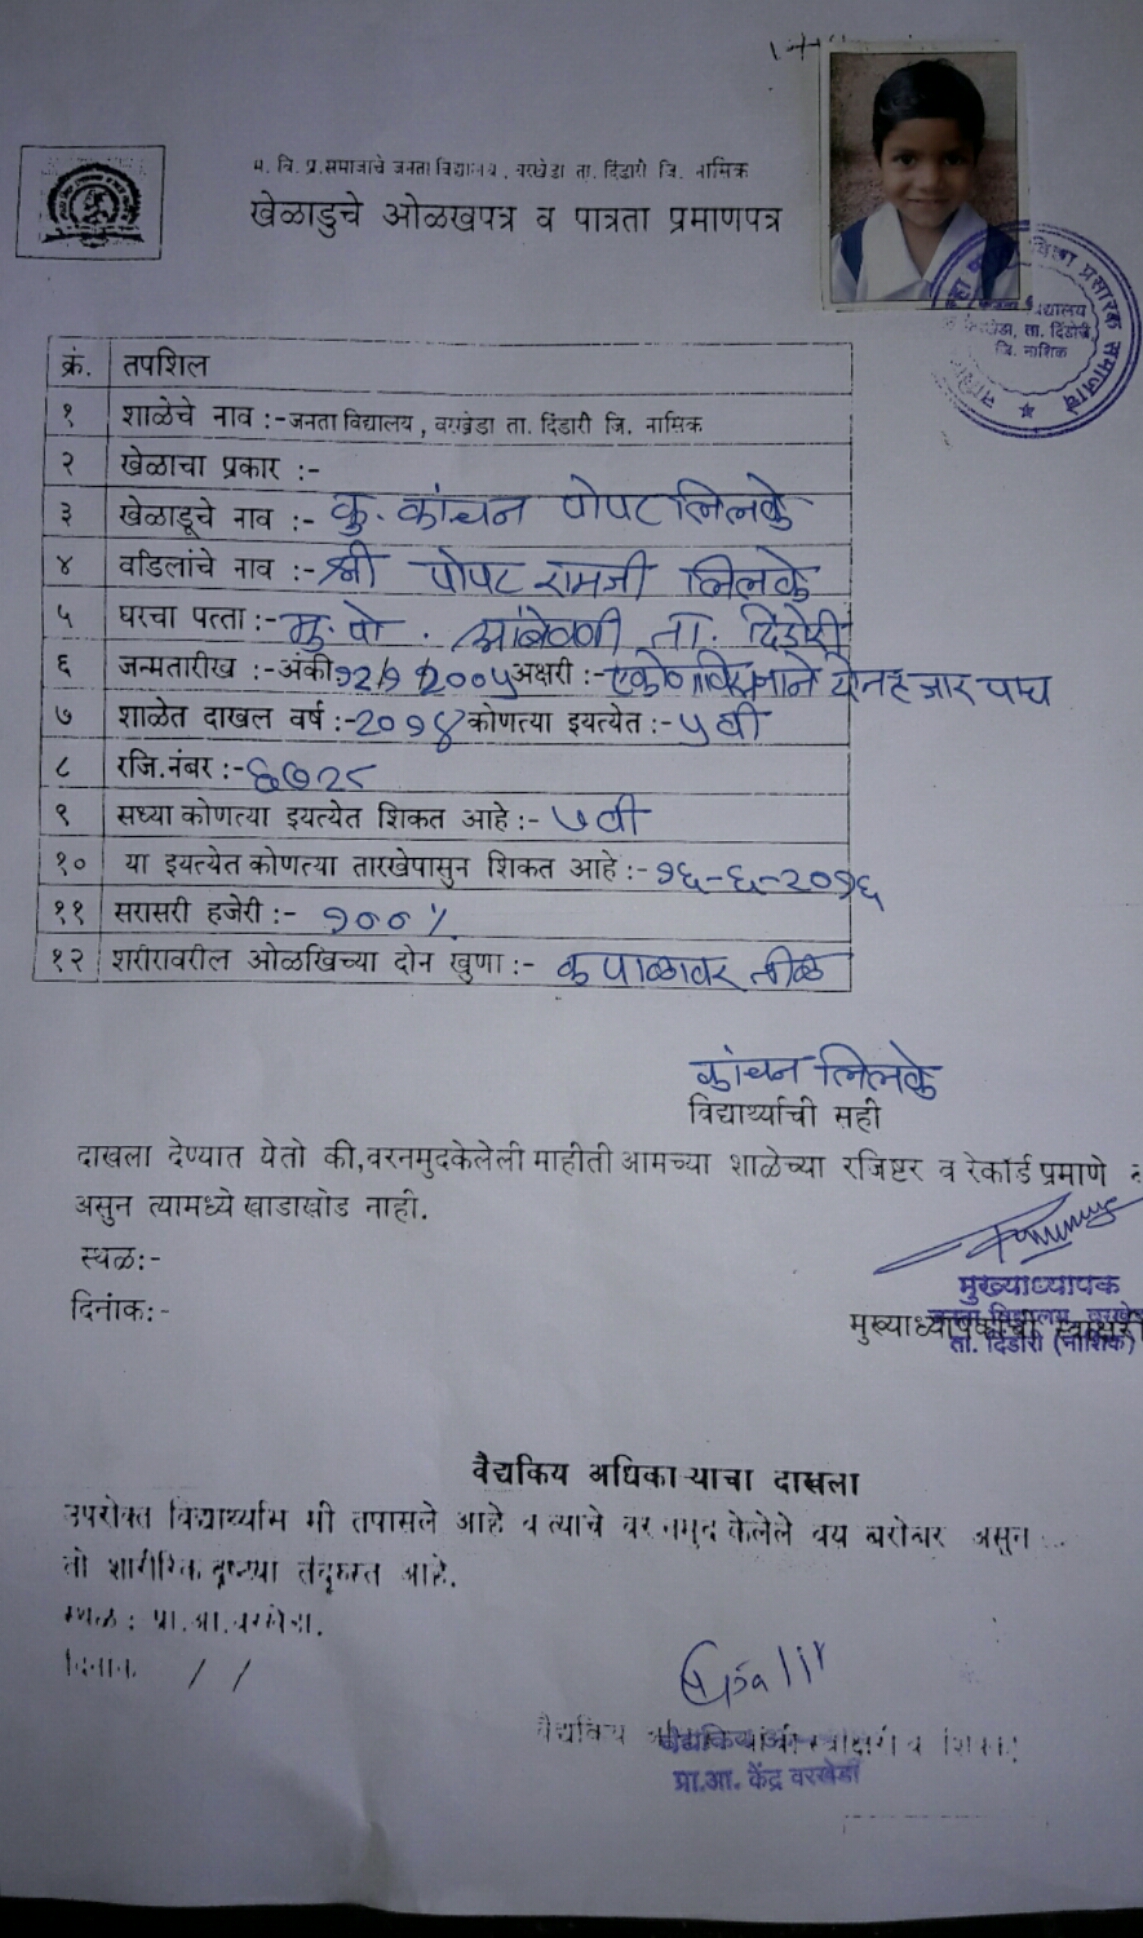 म. वि. प्र.समाजाचे जनता विद्यालय, वरखेडा ता. दिंडारी जि. नासिक
खेळाडुचे ओळखपत्र व पात्रता प्रमाणपत्र
विद्या प्रसारक समाजाचे
विद्यालय
ता. दिंडोरी
जि. नाशिक
क्रं. तपशिल
१ शाळेचे नाव :-जनता विद्यालय, वरखेडा ता. दिंडारी जि. नासिक
२ खेळाचा प्रकार :-
३ खेळाडूचे नाव :- कु. कांचन पोपट लिलके
४ वडिलांचे नाव :- श्री पोपट रामजी लिलके
५ घरचा पत्ता :- मु. पो. आंबेवणी ता. दिंडोरी
६ जन्मतारीख :-अंकी १२/१/२००५ अक्षरी :- दोनहजार पाच
७ शाळेत दाखल वर्ष :-२०१४ कोणत्या इयत्येत :- ५ वी
८ रजि.नंबर :- ६७२८
९ सध्या कोणत्या इयत्येत शिकत आहे :- ७ वी
१० या इयत्येत कोणत्या तारखेपासुन शिकत आहे :- १६-६-२०१६
११ सरासरी हजेरी :- १००%
१२ शरीरावरील ओळखिच्या दोन खुणा :- कपाळावर तीळ
कांचन लिलके
विद्यार्थ्याची सही
दाखला देण्यात येतो की,वरनमुदकेलेली माहीती आमच्या शाळेच्या रजिष्टर व रेकॉर्ड प्रमाणे
असुन त्यामध्ये खाडाखोड नाही.
स्थळ:-
दिनांक:-
मुख्याध्यापक
जनता विद्यालय, वरखेडा
ता. दिंडोरी (नाशिक)
मुख्याध्यापकांची स्वाक्षरी
वैद्यकिय अधिका-याचा दाखला
उपरोक्त विद्यार्थ्यास मी तपासले आहे व त्याचे वर नमुद केलेले वय बरोबर असुन
तो शारीरिक दृष्ट्या तंदुरुस्त आहे.
स्थळ : प्रा.आ.वरखेडा.
दिनांक / /
वैद्यकिय स्वाक्षरी व शिक्का
प्रा.आ. केंद्र वरखेडा